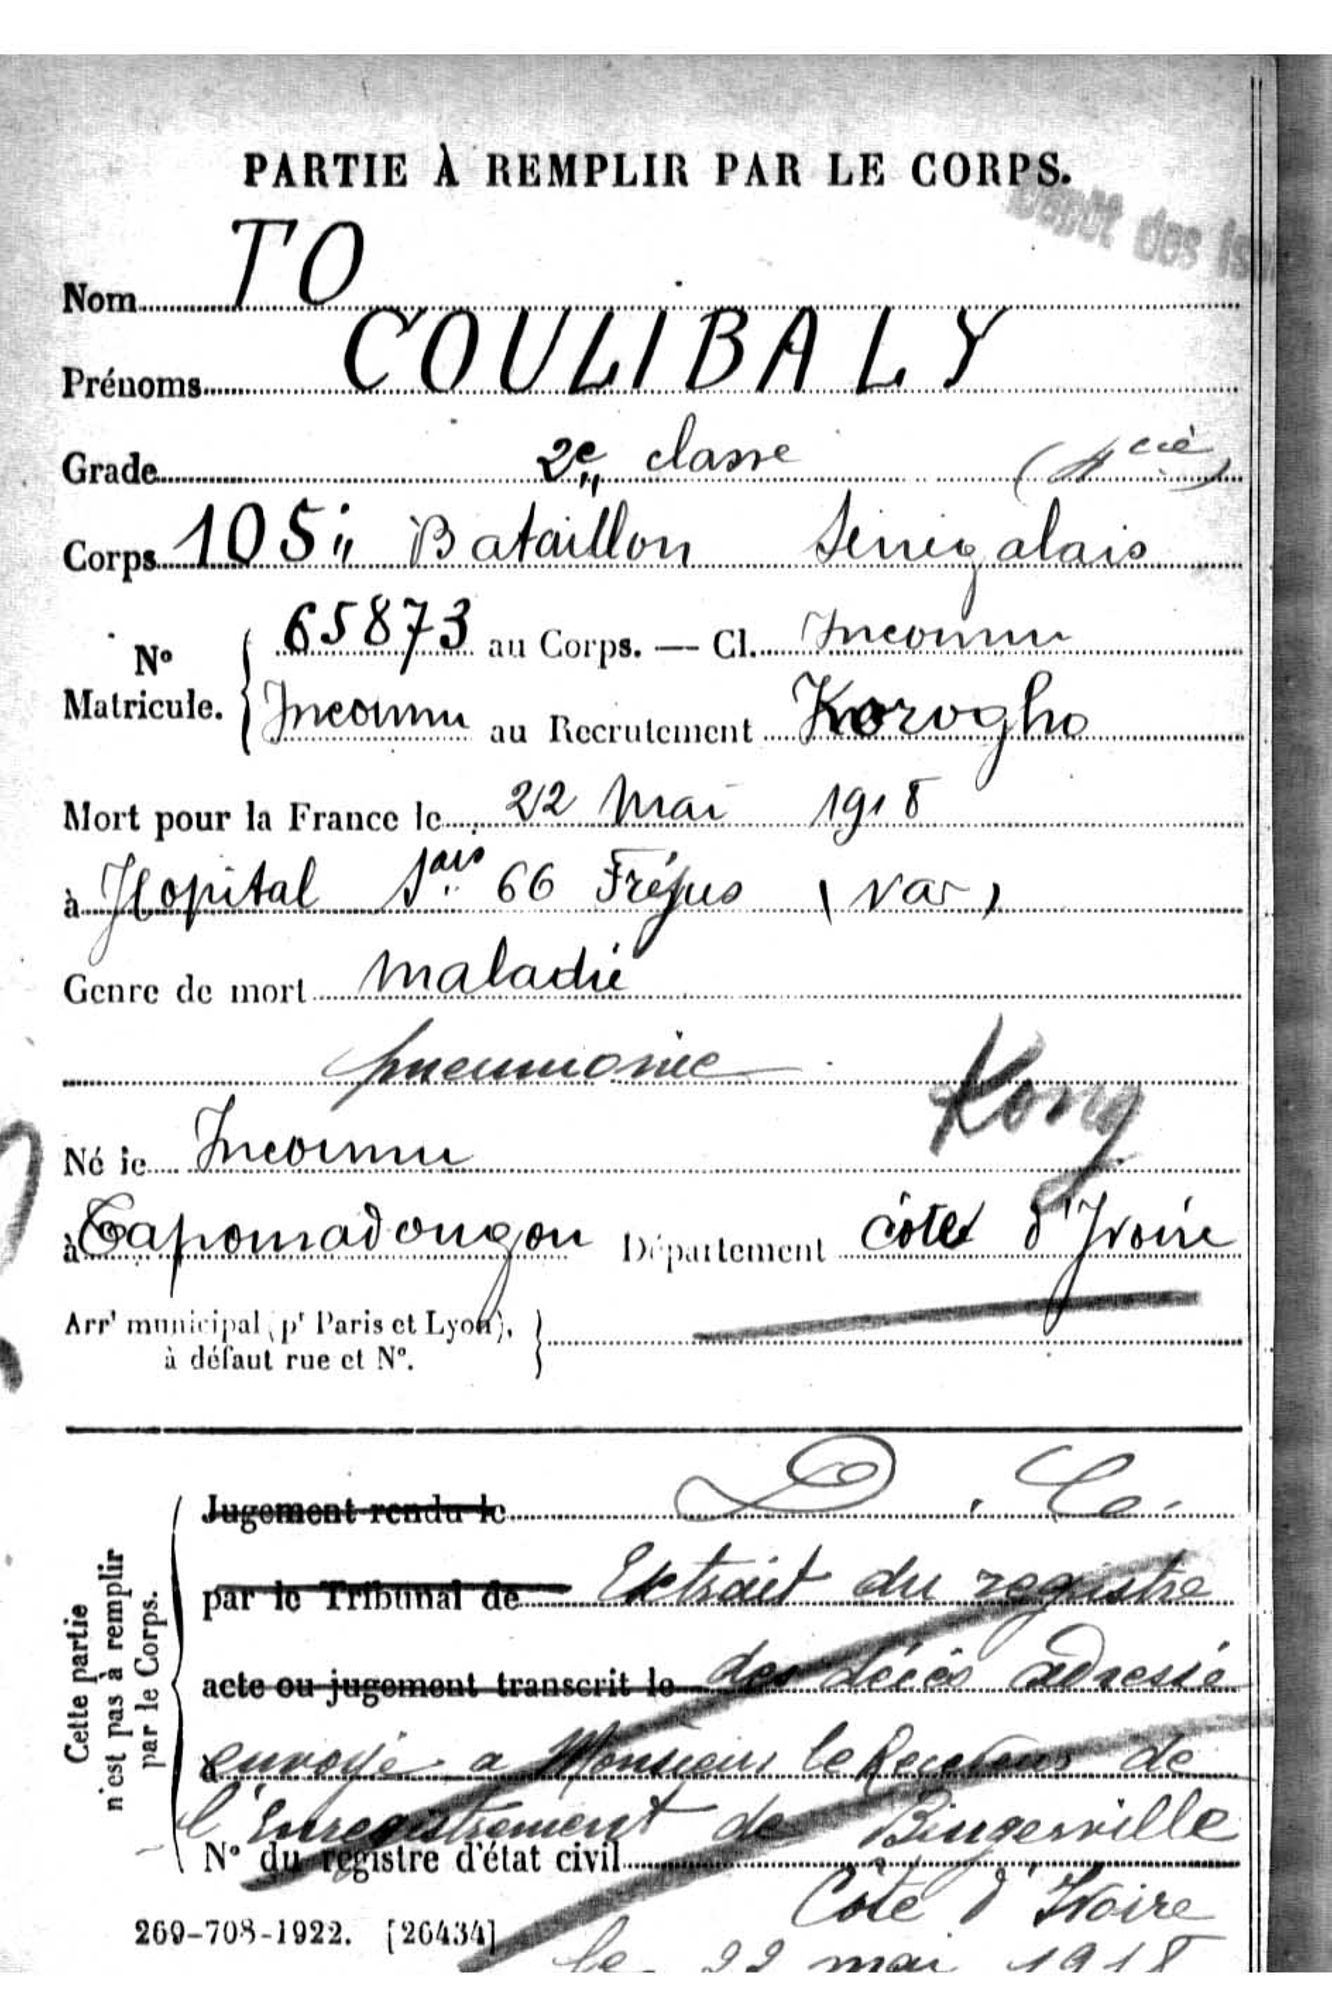 PARTIE À REMPLIR PAR LE CORPS.
Dépôt des Is
Nom TO
Prénoms COULIBALY
Grade 2e classe (4 cie)
Corps 105e Bataillon Sénégalais
N° Matricule. 65873 au Corps. — Cl. Inconnu
Inconnu au Recrutement Korogho
Mort pour la France le 22 Mai 1918
à Hopital 66 Fréjus (Var)
Genre de mort maladie
pneumonie
Kong
Né le Inconnu
à Tapomadougou Département côte d'Ivoire
Arrt municipal (pr Paris et Lyon),
à défaut rue et N°.
Cette partie
n'est pas à remplir
par le Corps.
Jugement rendu le D.C.
par le Tribunal de Extrait du registre
acte ou jugement transcrit le des décès adressé
envoyé a Monsieur le Receveur de
l'Enregistrement de Bingerville
N° du registre d'état civil
Côte d'Ivoire
269-708-1922. [26434]
le 22 mai 1918